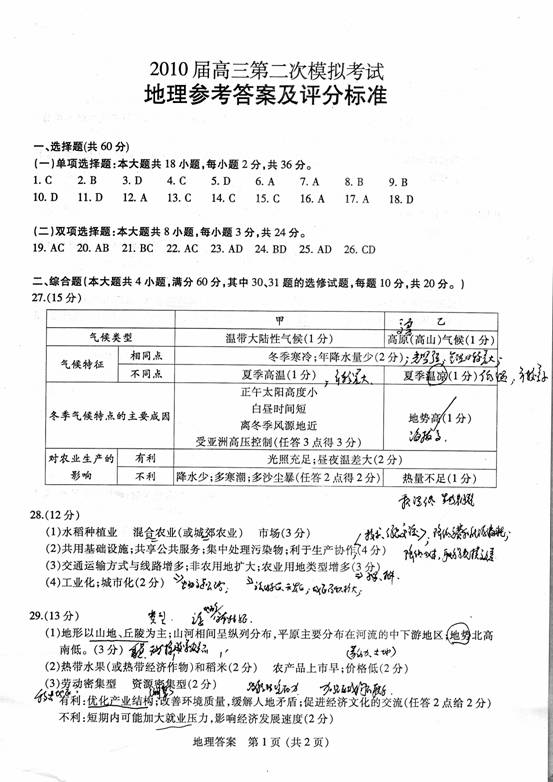 2010届高三第二次模拟考试
地理参考答案及评分标准
一、选择题(共60分)
(一)单项选择题:本大题共18小题,每小题2分,共36分。
1. C 2. B 3. D 4. C 5. D 6. A 7. A 8. B 9. B
10. D 11. D 12. A 13. C 14. C 15. C 16. A 17. A 18. D
(二)双项选择题:本大题共8小题,每小题3分,共24分。
19. AC 20. AB 21. BC 22. AC 23. AD 24. BD 25. AD 26. CD
二、综合题(本大题共4小题,满分60分,其中30、31题的选修试题,每题10分,共20分。)
27.(15分)
甲 乙
气候类型 温带大陆性气候(1分) 高原(高山)气候(1分)
气候特征 相同点 冬季寒冷;年降水量少(2分)
不同点 夏季高温(1分) 夏季温凉(1分)
冬季气候特点的主要成因
正午太阳高度小
白昼时间短
离冬季风源地近
受亚洲高压控制(任答3点得3分)
地势高(1分)
海拔高
对农业生产的影响 有利 光照充足;昼夜温差大(2分)
不利 降水少;多寒潮;多沙尘暴(任答2点得2分) 热量不足(1分)
28.(12分)
(1)水稻种植业 混合农业(或城郊农业) 市场(3分)
(2)共用基础设施;共享公共服务;集中处理污染物;利于生产协作(4分)
(3)交通运输方式与线路增多;非农用地扩大;农业用地类型增多(3分)
(4)工业化;城市化(2分)
29.(13分)
(1)地形以山地、丘陵为主;山河相间呈纵列分布,平原主要分布在河流的中下游地区;地势北高
南低。(3分)
(2)热带水果(或热带经济作物)和稻米(2分) 农产品上市早;价格低(2分)
(3)劳动密集型 资源密集型(2分)
有利:优化产业结构;改善环境质量,缓解人地矛盾;促进经济文化的交流(任答2点给2分)
不利:短期内可能加大就业压力,影响经济发展速度(2分)
地理答案 第1页(共2页)